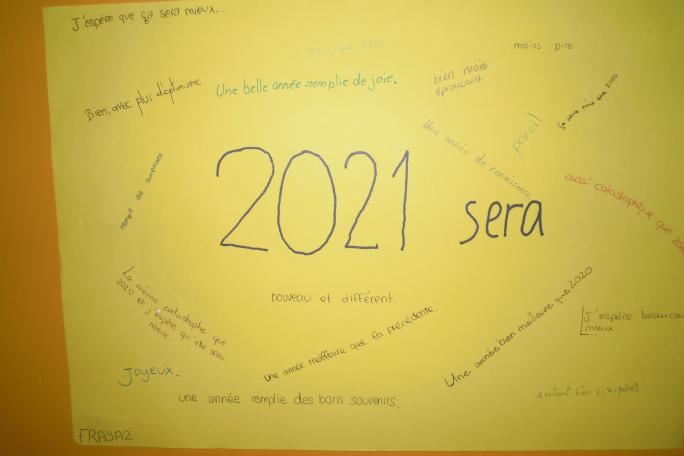 J'espère que ça sera mieux...
moins pire
Bien, avec plus d'optimisme
Une belle année remplie de joie.
bien moins
éprouvant
ça sera mieux que 2020
Une année de renaissance
pareil
remplie de surprises
aussi catastrophique que 2020
2021 sera
nouveau et différent.
La même catastrophe que
2020 et j'espère qu'elle sera
mieux
une année meilleure que la précédente.
Une année bien meilleure que 2020
J'espère beaucoup
mieux.
Joyeux.
une année remplie des bons souvenirs.
autant bien (j'espère)
FRA9A2